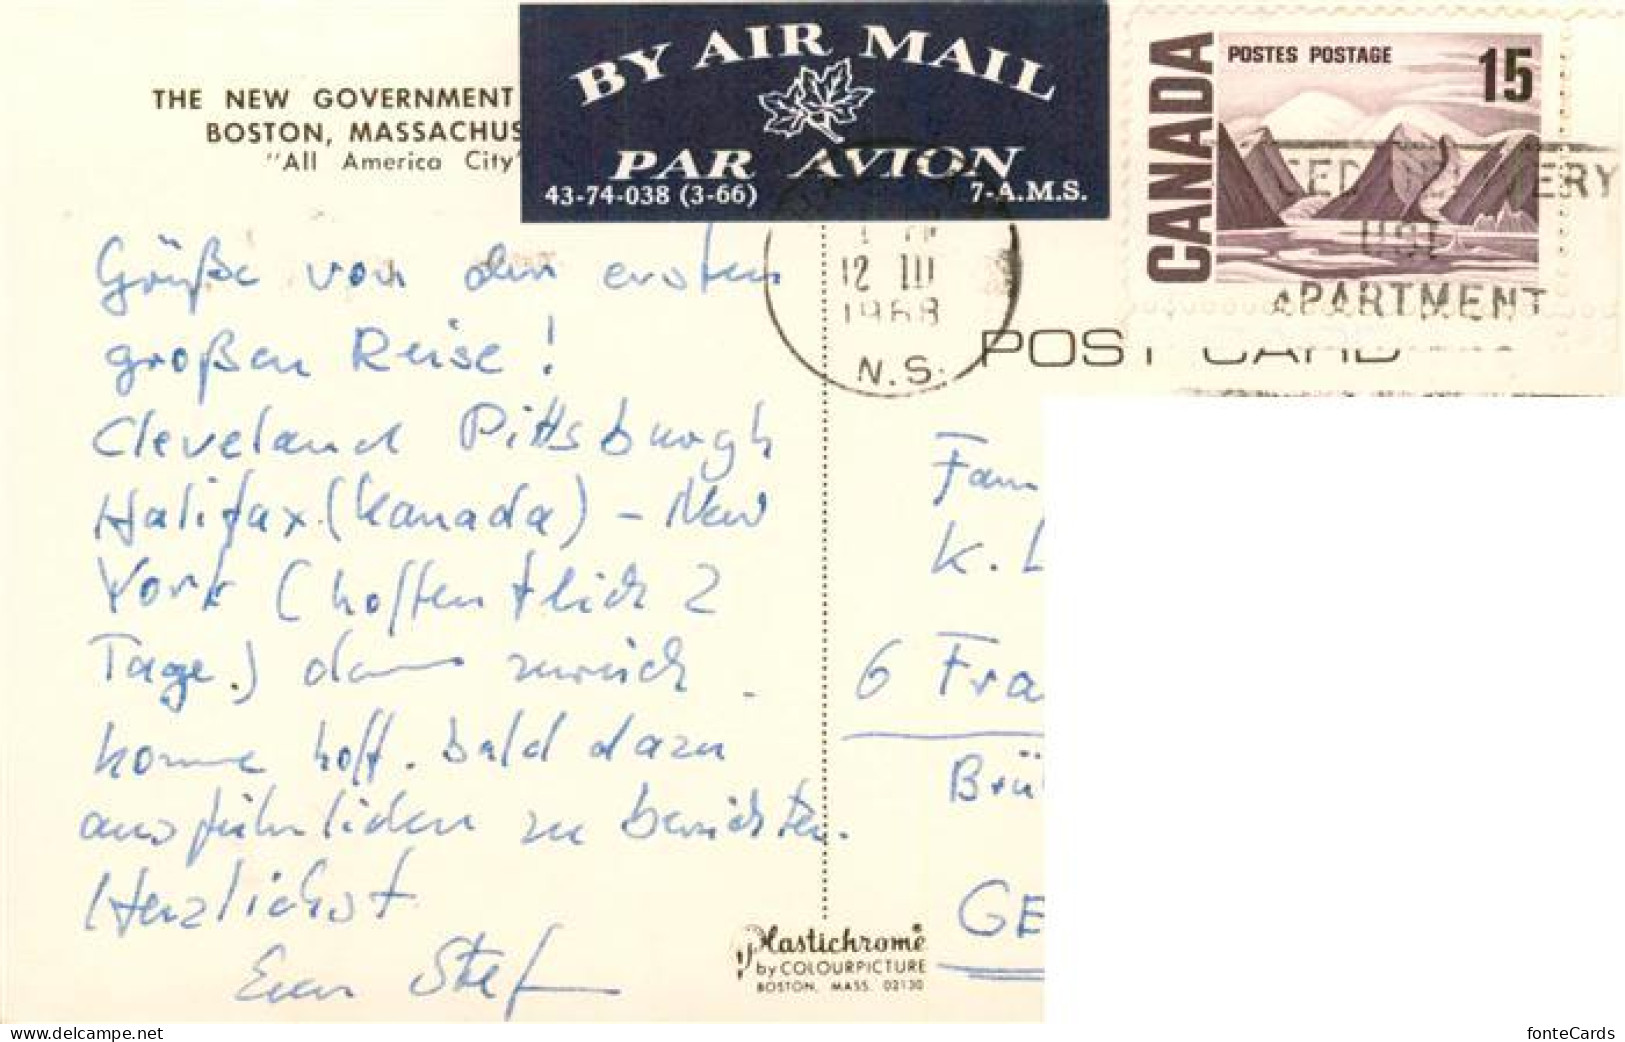 BY AIR MAIL
PAR AVION
43-74-038 (3-66) 7-A.M.S.
CANADA
POSTES POSTAGE 15
THE NEW GOVERNMENT
BOSTON, MASSACHUS
"All America City"
12 III
1968
N.S.
APARTMENT
POST CARD
Grüße von der ersten
großen Reise!
Cleveland Pittsburgh
Halifax (Kanada) - New
York (hoffentlich 2
Tage.) dann zurück.
komme hoff. bald dazu
ausführlicher zu berichten.
Herzlichst
Euer Stef
Fam
K. L
6 Fra
Brü
GE
Plastichrome®
by COLOURPICTURE
BOSTON, MASS. 02130
www.delcampe.net
fonteCards